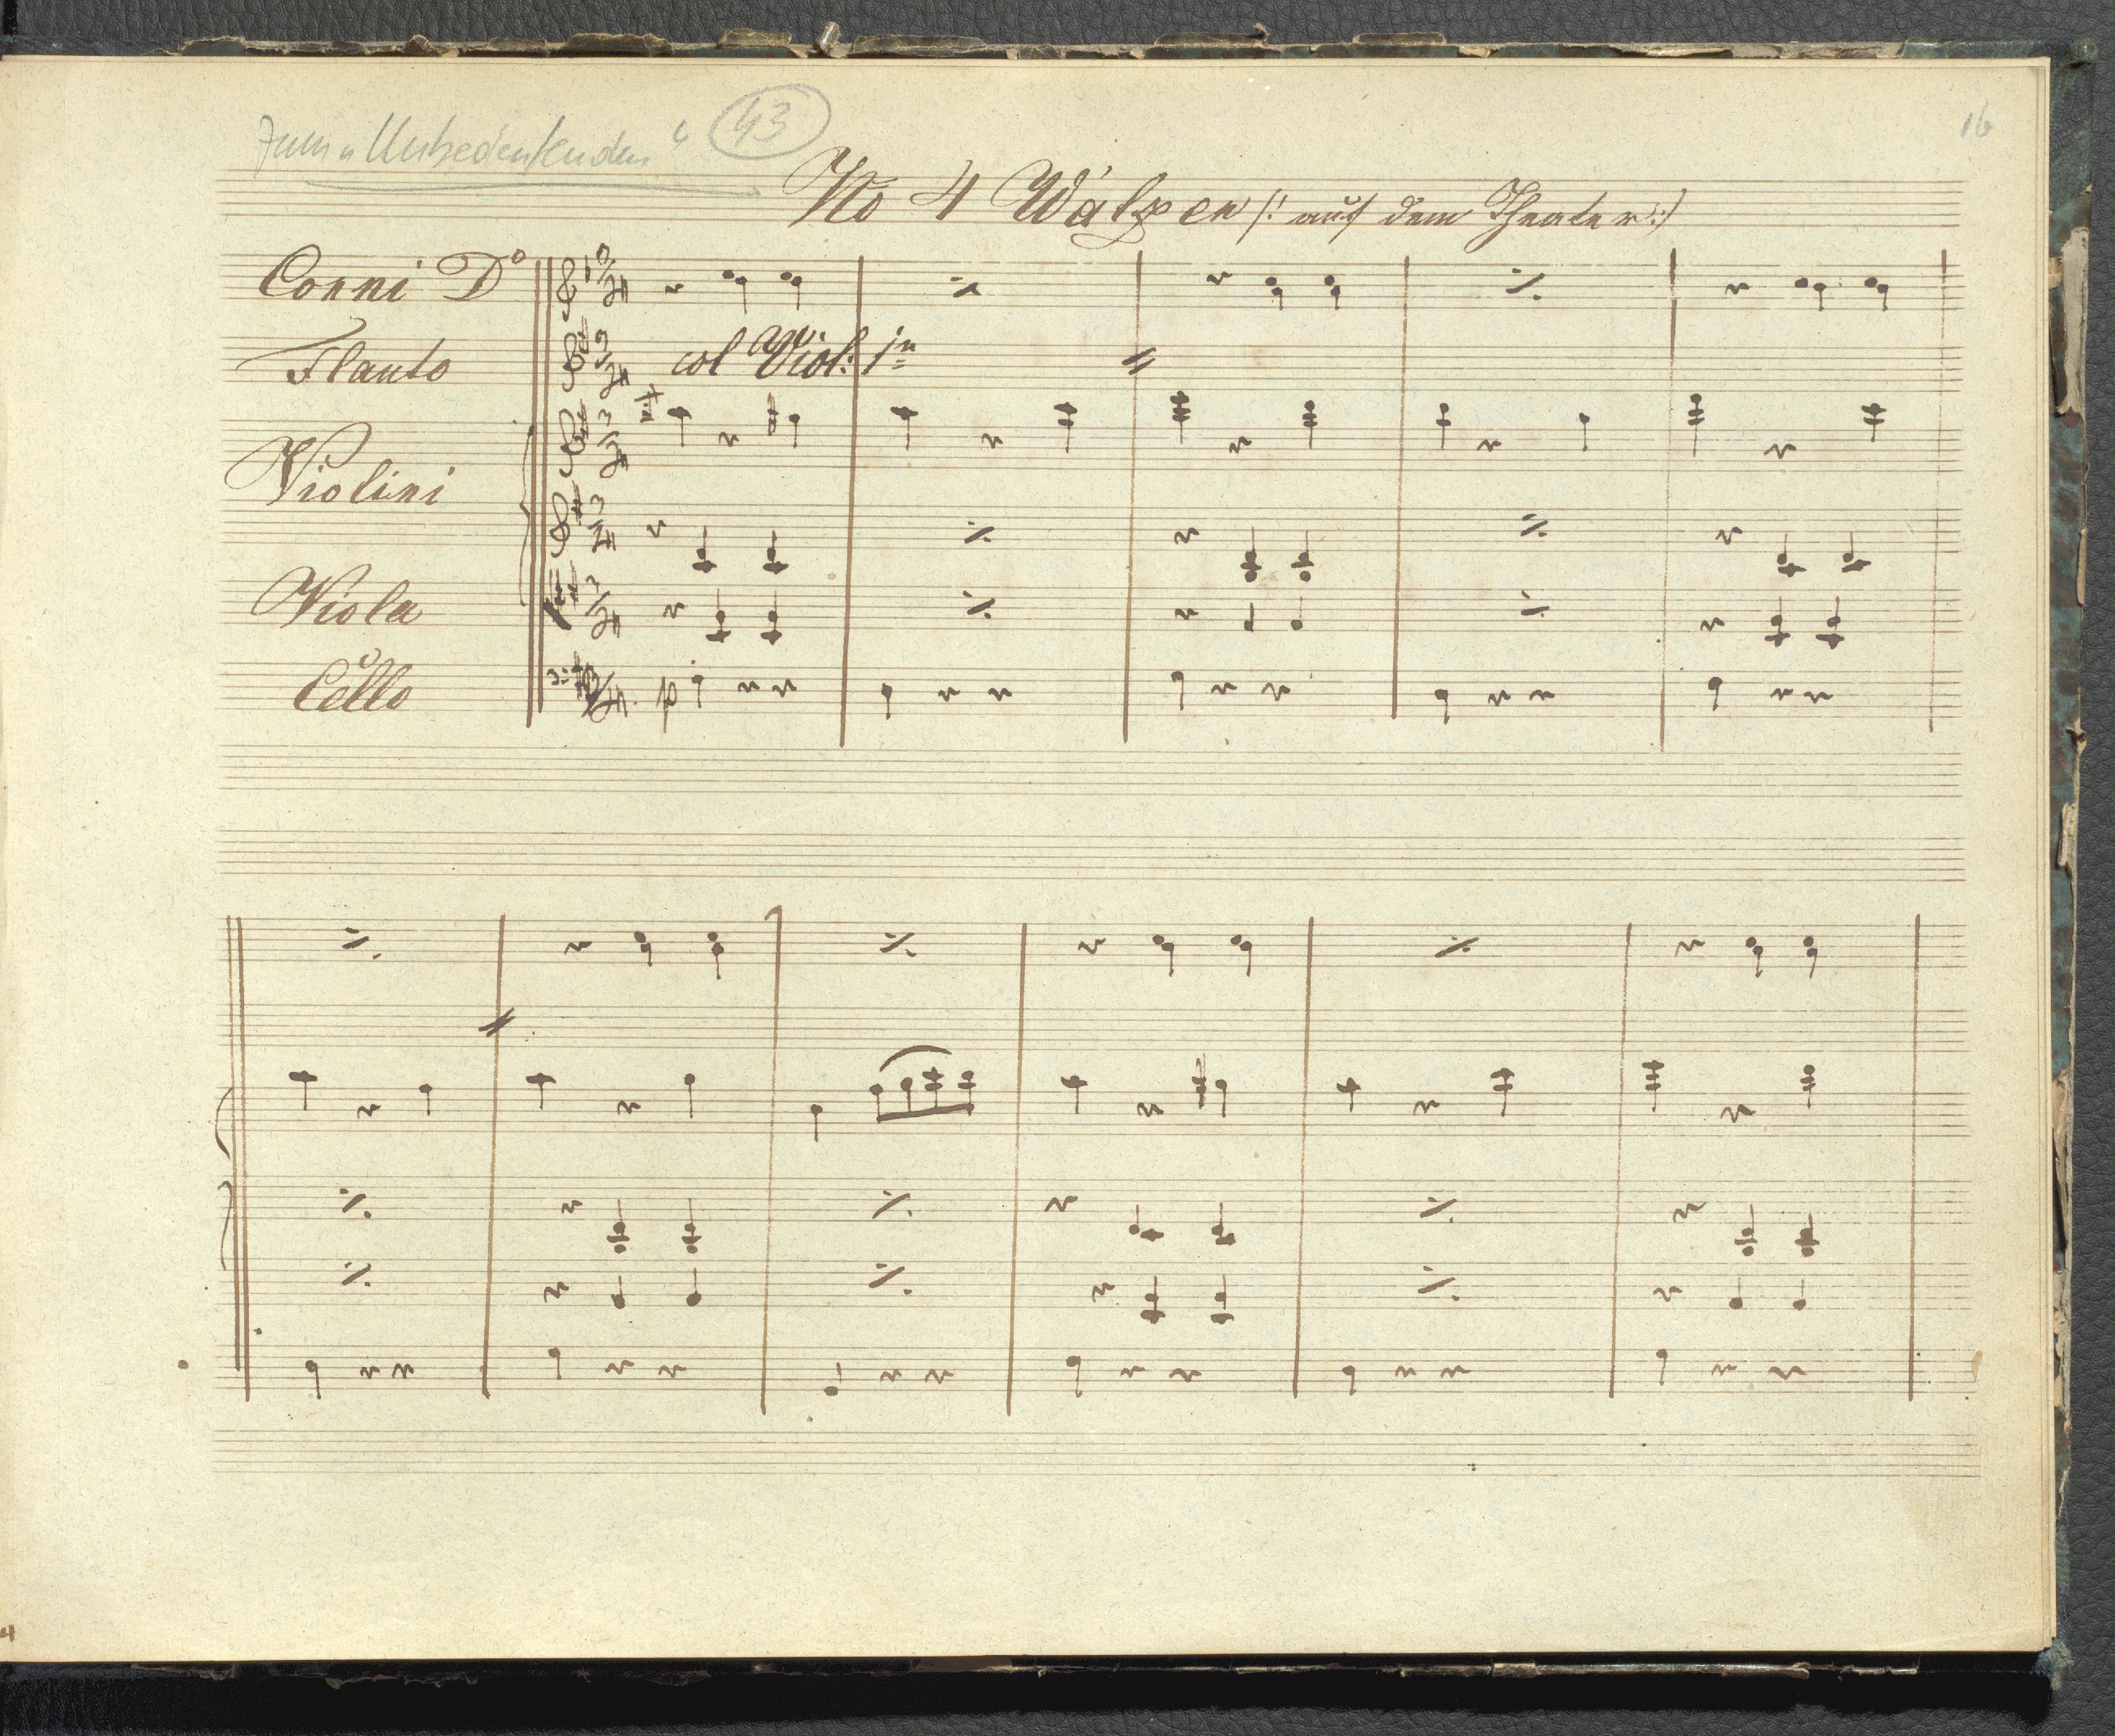 Zum „Unbedeutenden“ 43
16
No 4 Walzer /: auf dem Theater :/
Corni D°
Flauto
col Viol: 1mo
Violini
Viola
Cello
p
4